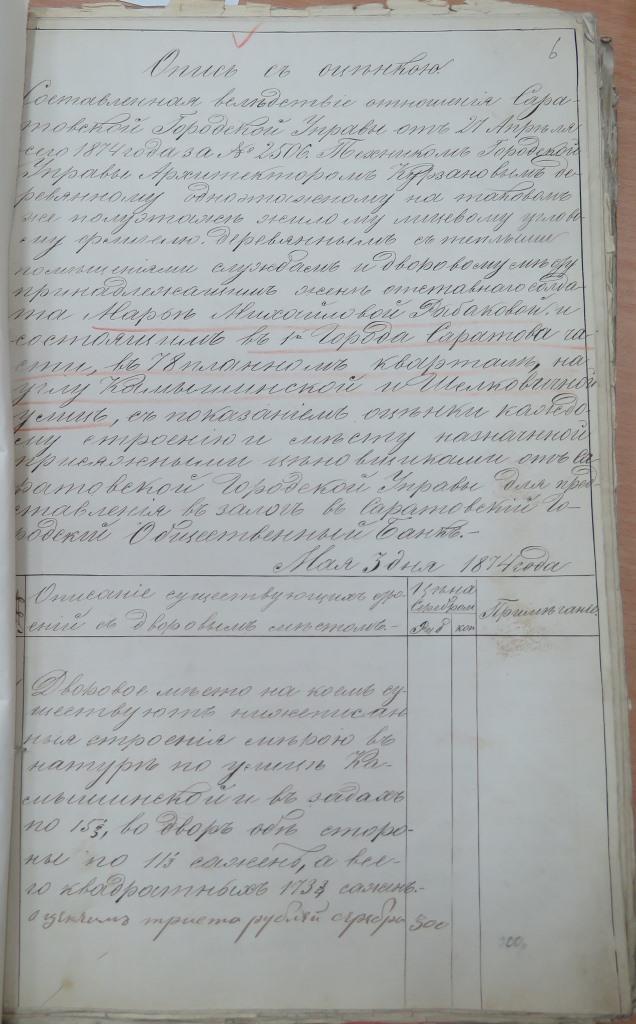 6
Опись съ оцѣнкою.
Составленная вслѣдствіе отношенія Сара-
товской Городской Управы отъ 27 Апрѣля
сего 1874 года за № 2506. Техникомъ Городской
Управы Архитекторомъ де-
ревянному одноэтажному на таковомъ
же полуэтажѣ жилому лицевому углово-
му флигелю. деревяннымъ съ теплыми
помѣщеніями службамъ и дворовому мѣсту
принадлежащимъ женѣ отставного солда-
та Марьѣ Михайловой Рыбаковой и
состоящимъ въ 1й Города Саратова ча-
сти, въ 78 планномъ кварталѣ, на
углу Камышинской и Шелковичной
улицъ, съ показаніемъ оцѣнки каждо-
му строенію и мѣсту назначенной
присяжными цѣновщиками отъ Са-
ратовской Городской Управы для пред-
ставленія въ залогъ въ Саратовскій Го-
родскій Общественный Банкъ.-
Мая 3 дня 1874 года
Описаніе существующихъ стро-
еній съ дворовымъ мѣстомъ.-
Цѣна
Серебромъ
Руб коп
Примѣчаніе
Дворовое мѣсто на коемъ су-
ществуютъ нижеписан
ныя строенія мѣрою въ
натурѣ по улицѣ Ка-
мышинской и въ задахъ
по 15⅔, во дворъ обѣ сторо-
ны по 11 саженъ, а все-
го квадратныхъ 173 саженъ.-
оцѣнимъ триста рублей серебр 300
300